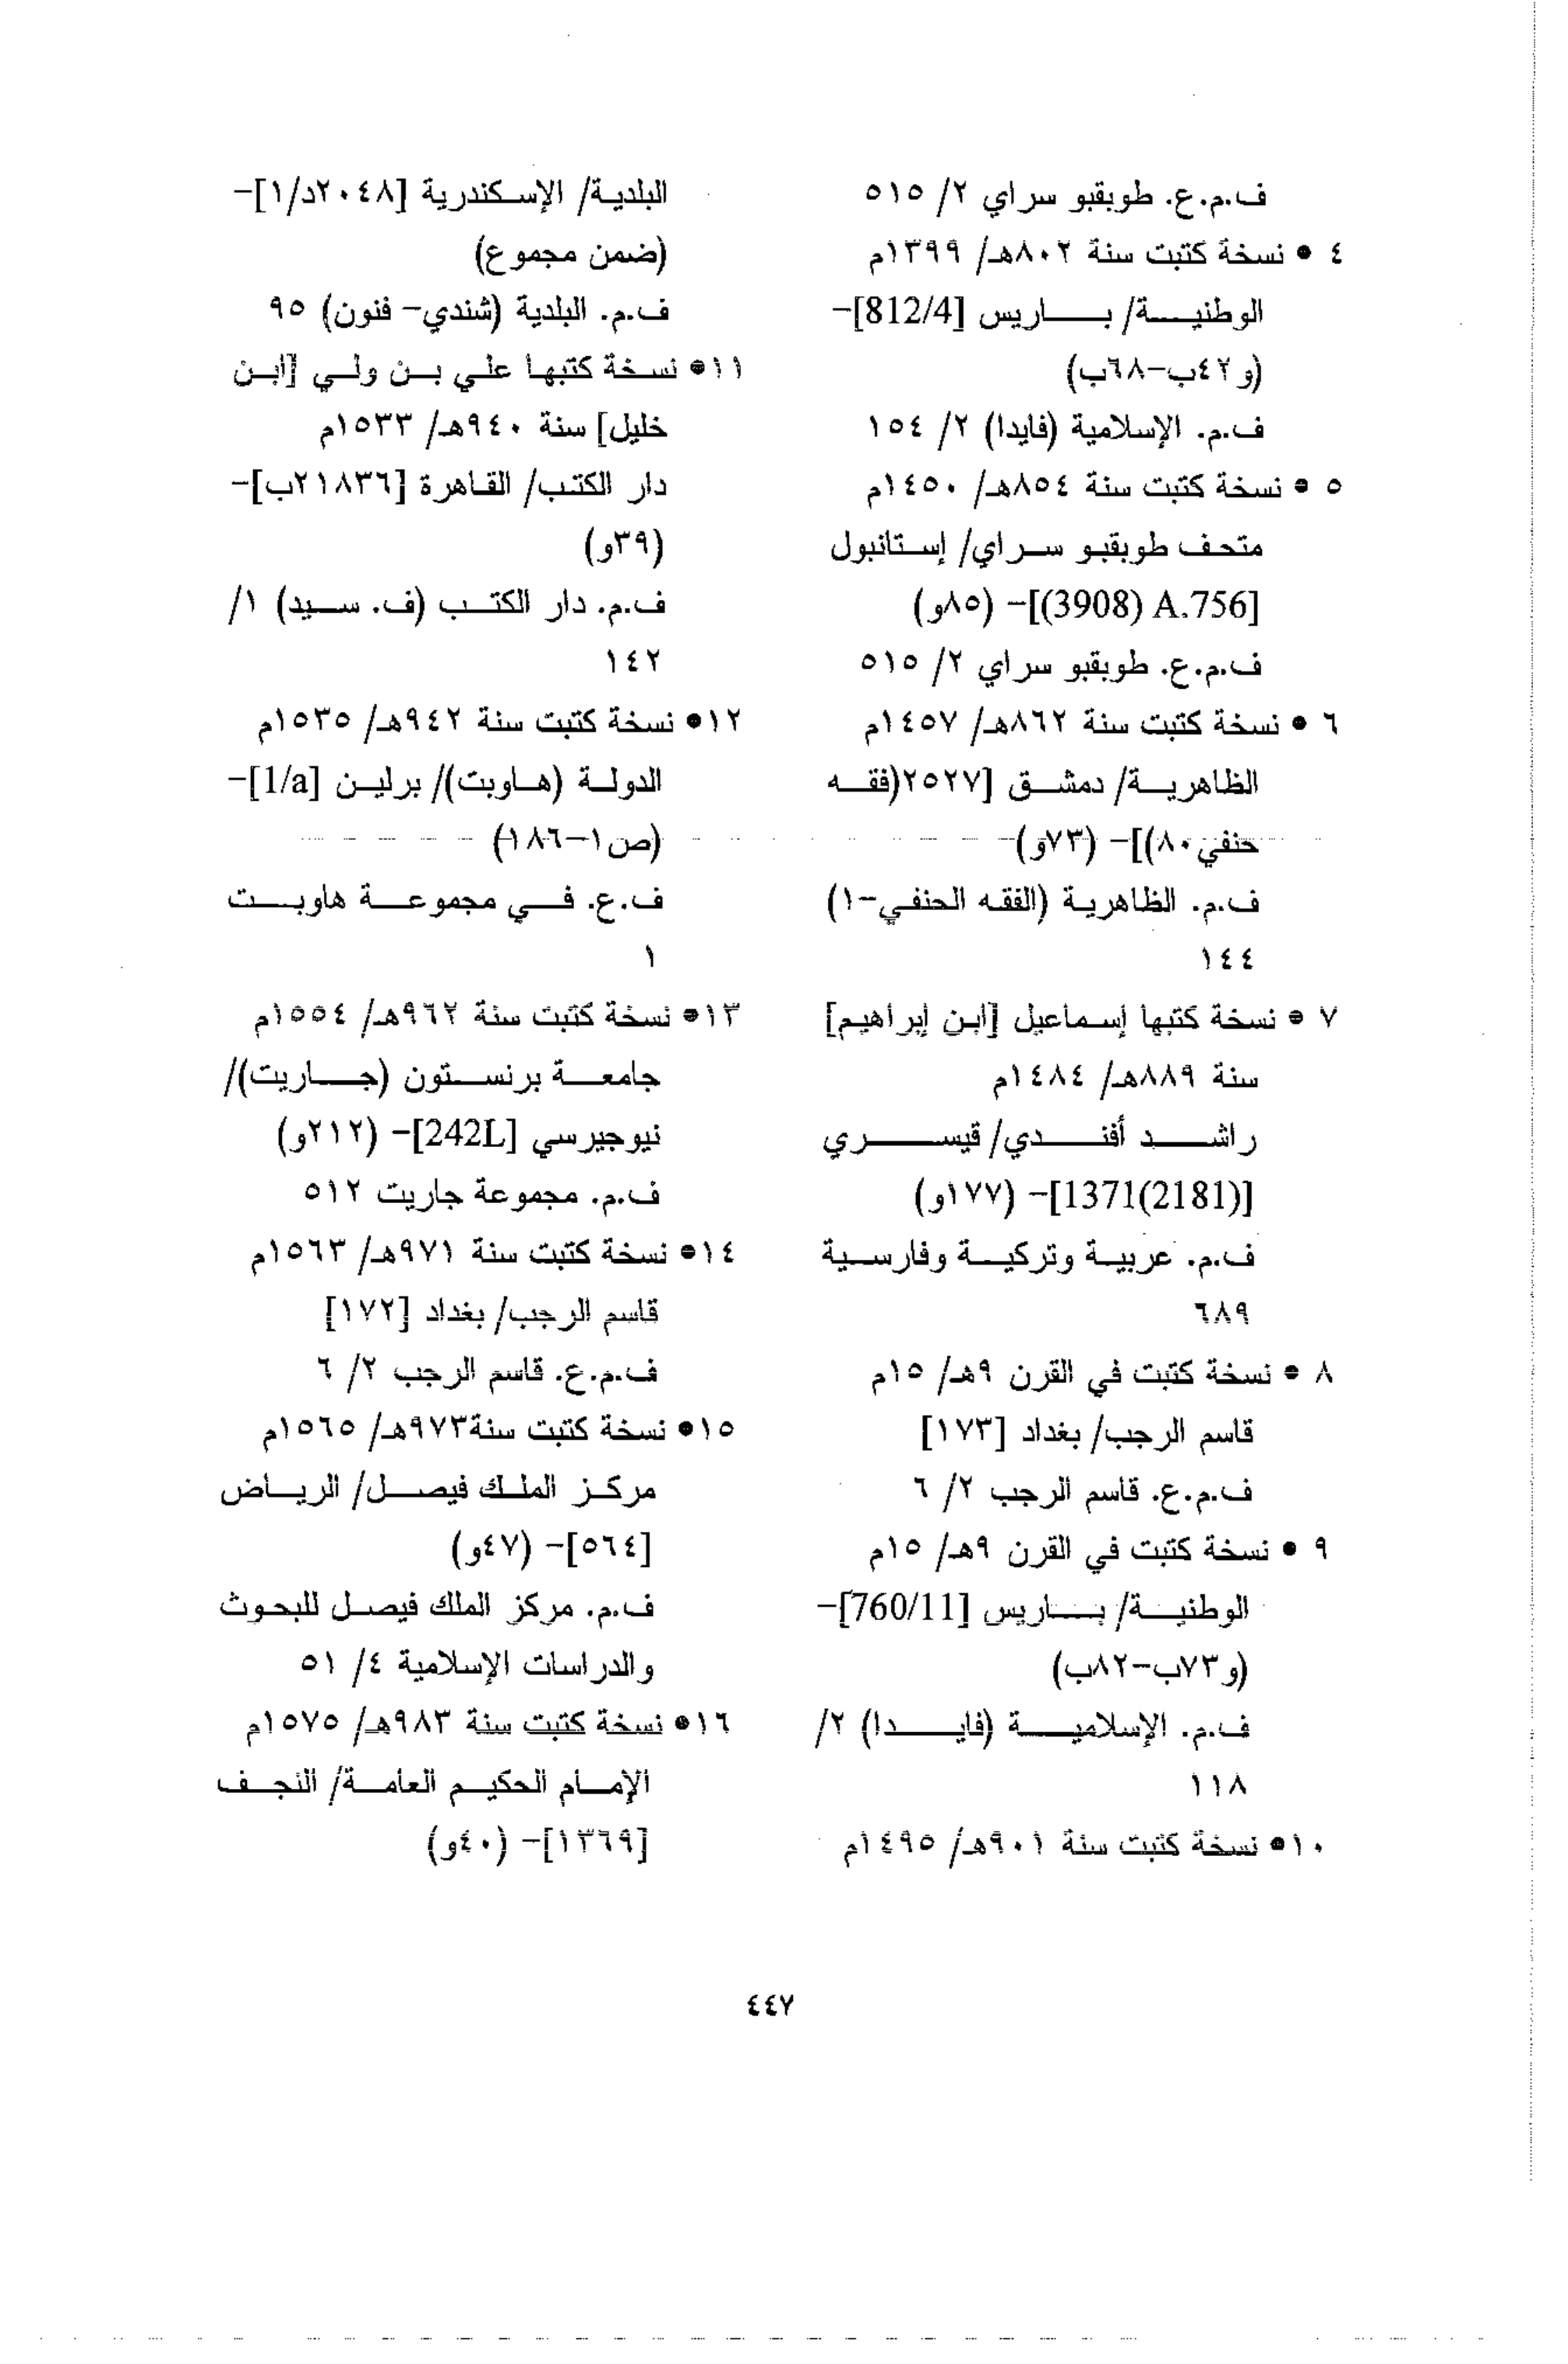 ف.م.ع. طوبقبو سراي ٢/ ٥١٥
٤ • نسخة كتبت سنة ٨٠٢هـ/ ١٣٩٩م
الوطنيـــة/ بـــــاريس [812/4]-
(و٤٢ب-٦٨ب)
ف.م. الإسلامية (فايدا) ٢/ ١٥٤
٥ • نسخة كتبت سنة ٨٥٤هـ/ ١٤٥٠م
متحف طوبقبو سراي/ إستانبول
[A.756 (3908)]- (٨٥و)
ف.م.ع. طوبقبو سراي ٢/ ٥١٥
٦ • نسخة كتبت سنة ٨٦٢هـ/ ١٤٥٧م
الظاهرية/ دمشق [٢٥٢٧(فقه
حنفي٨٠)]- (٧٣و)
ف.م. الظاهرية (الفقه الحنفي-١)
١٤٤
٧ • نسخة كتبها إسماعيل [ابن إبراهيم]
سنة ٨٨٩هـ/ ١٤٨٤م
راشد أفندي/ قيسري
[1371(2181)]- (١٧٧و)
ف.م. عربية وتركية وفارسية
٦٨٩
٨ • نسخة كتبت في القرن ٩هـ/ ١٥م
قاسم الرجب/ بغداد [١٧٣]
ف.م.ع. قاسم الرجب ٢/ ٦
٩ • نسخة كتبت في القرن ٩هـ/ ١٥م
الوطنية/ باريس [760/11]-
(و٧٣ب-٨٢ب)
ف.م. الإسلامية (فايدا) ٢/
١١٨
١٠• نسخة كتبت سنة ٩٠١هـ/ ١٤٩٥م
البلدية/ الإسكندرية [٢٠٤٨د/١]-
(ضمن مجموع)
ف.م. البلدية (شندي- فنون) ٩٥
١١• نسخة كتبها علي بن ولي [ابن
خليل] سنة ٩٤٠هـ/ ١٥٣٣م
دار الكتب/ القاهرة [٢١٨٣٦ب]-
(٣٩و)
ف.م. دار الكتب (ف. سيد) ١/
١٤٢
١٢• نسخة كتبت سنة ٩٤٢هـ/ ١٥٣٥م
الدولة (هاوبت)/ برلين [1/a]-
(ص١-١٨٦)
ف.ع. في مجموعة هاوبت
١
١٣• نسخة كتبت سنة ٩٦٢هـ/ ١٥٥٤م
جامعة برنستون (جاريت)/
نيوجيرسي [242L]- (٢١٢و)
ف.م. مجموعة جاريت ٥١٢
١٤• نسخة كتبت سنة ٩٧١هـ/ ١٥٦٣م
قاسم الرجب/ بغداد [١٧٢]
ف.م.ع. قاسم الرجب ٢/ ٦
١٥• نسخة كتبت سنة٩٧٣هـ/ ١٥٦٥م
مركز الملك فيصل/ الرياض
[٥٦٤]- (٤٧و)
ف.م. مركز الملك فيصل للبحوث
والدراسات الإسلامية ٤/ ٥١
١٦• نسخة كتبت سنة ٩٨٣هـ/ ١٥٧٥م
الإمام الحكيم العامة/ النجف
[١٣٦٩]- (٤٠و)
٤٤٧